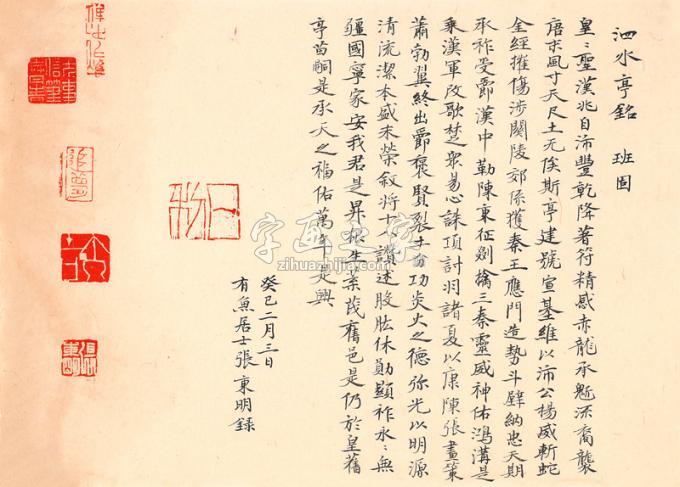 泗水亭銘 班固
皇〻聖漢兆自沛豐乾降著符精感赤龍承魁流裔襲
唐末風寸天尺土无俟斯亭建號宣基維以沛公楊威斬蛇
金經摧傷涉關陵郊係獲秦王應門造勢斗壁納忠天期
承祚受爵漢中勒陳東征剟擒三秦靈威神佑鴻溝是
乘漢軍改歌楚衆易心誅項討羽諸夏以康陳張畫策
蕭勃翼終出爵褒賢裂土封功炎火之德弥光以明源
清流潔本盛末榮敘將十八讚述股肱休勛顯祚永〻無
疆國寧家安我君是昇根生葉茂舊邑是仍於皇舊
亭苗嗣是承天之福佑萬年是興
癸巳二月三日
有魚居士張東明錄
字画之家
zihuazhijia.com